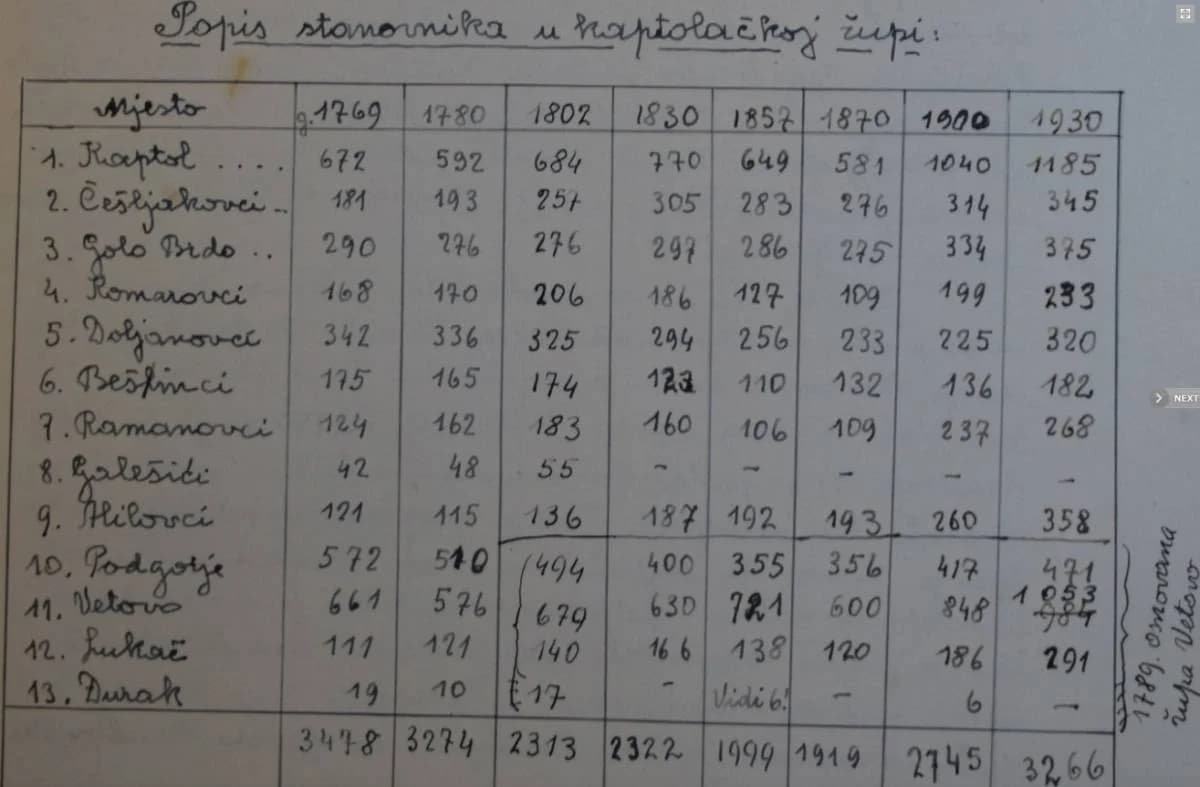 Popis stanovnika u kaptolačkoj župi:
Mjesto g. 1769 1780 1802 1830 1857 1870 1900 1930
1. Kaptol .... 672 592 684 770 649 581 1040 1185
2. Češljakovci .. 181 193 257 305 283 276 314 345
3. Golo Brdo .. 290 276 276 297 286 275 334 375
4. Komarovci 168 170 206 186 127 109 199 233
5. Doljanovci 342 336 325 294 256 233 225 320
6. Bešinci 175 165 174 123 110 132 136 182
7. Ramanovci 124 162 183 160 106 109 237 268
8. Galešići 42 48 55 - - - - -
9. Alilovci 121 115 136 187 192 193 260 358
10. Podgorje 572 510 494 400 355 356 417 471
11. Vetovo 661 576 679 630 721 600 848 1053 984
12. Lukač 111 121 140 166 138 120 186 291
13. Durak 19 10 17 - Vidi 6! - 6 -
3478 3274 2313 2322 1999 1919 2745 3266
1789. osnovana
župa Vetovo
NEXT